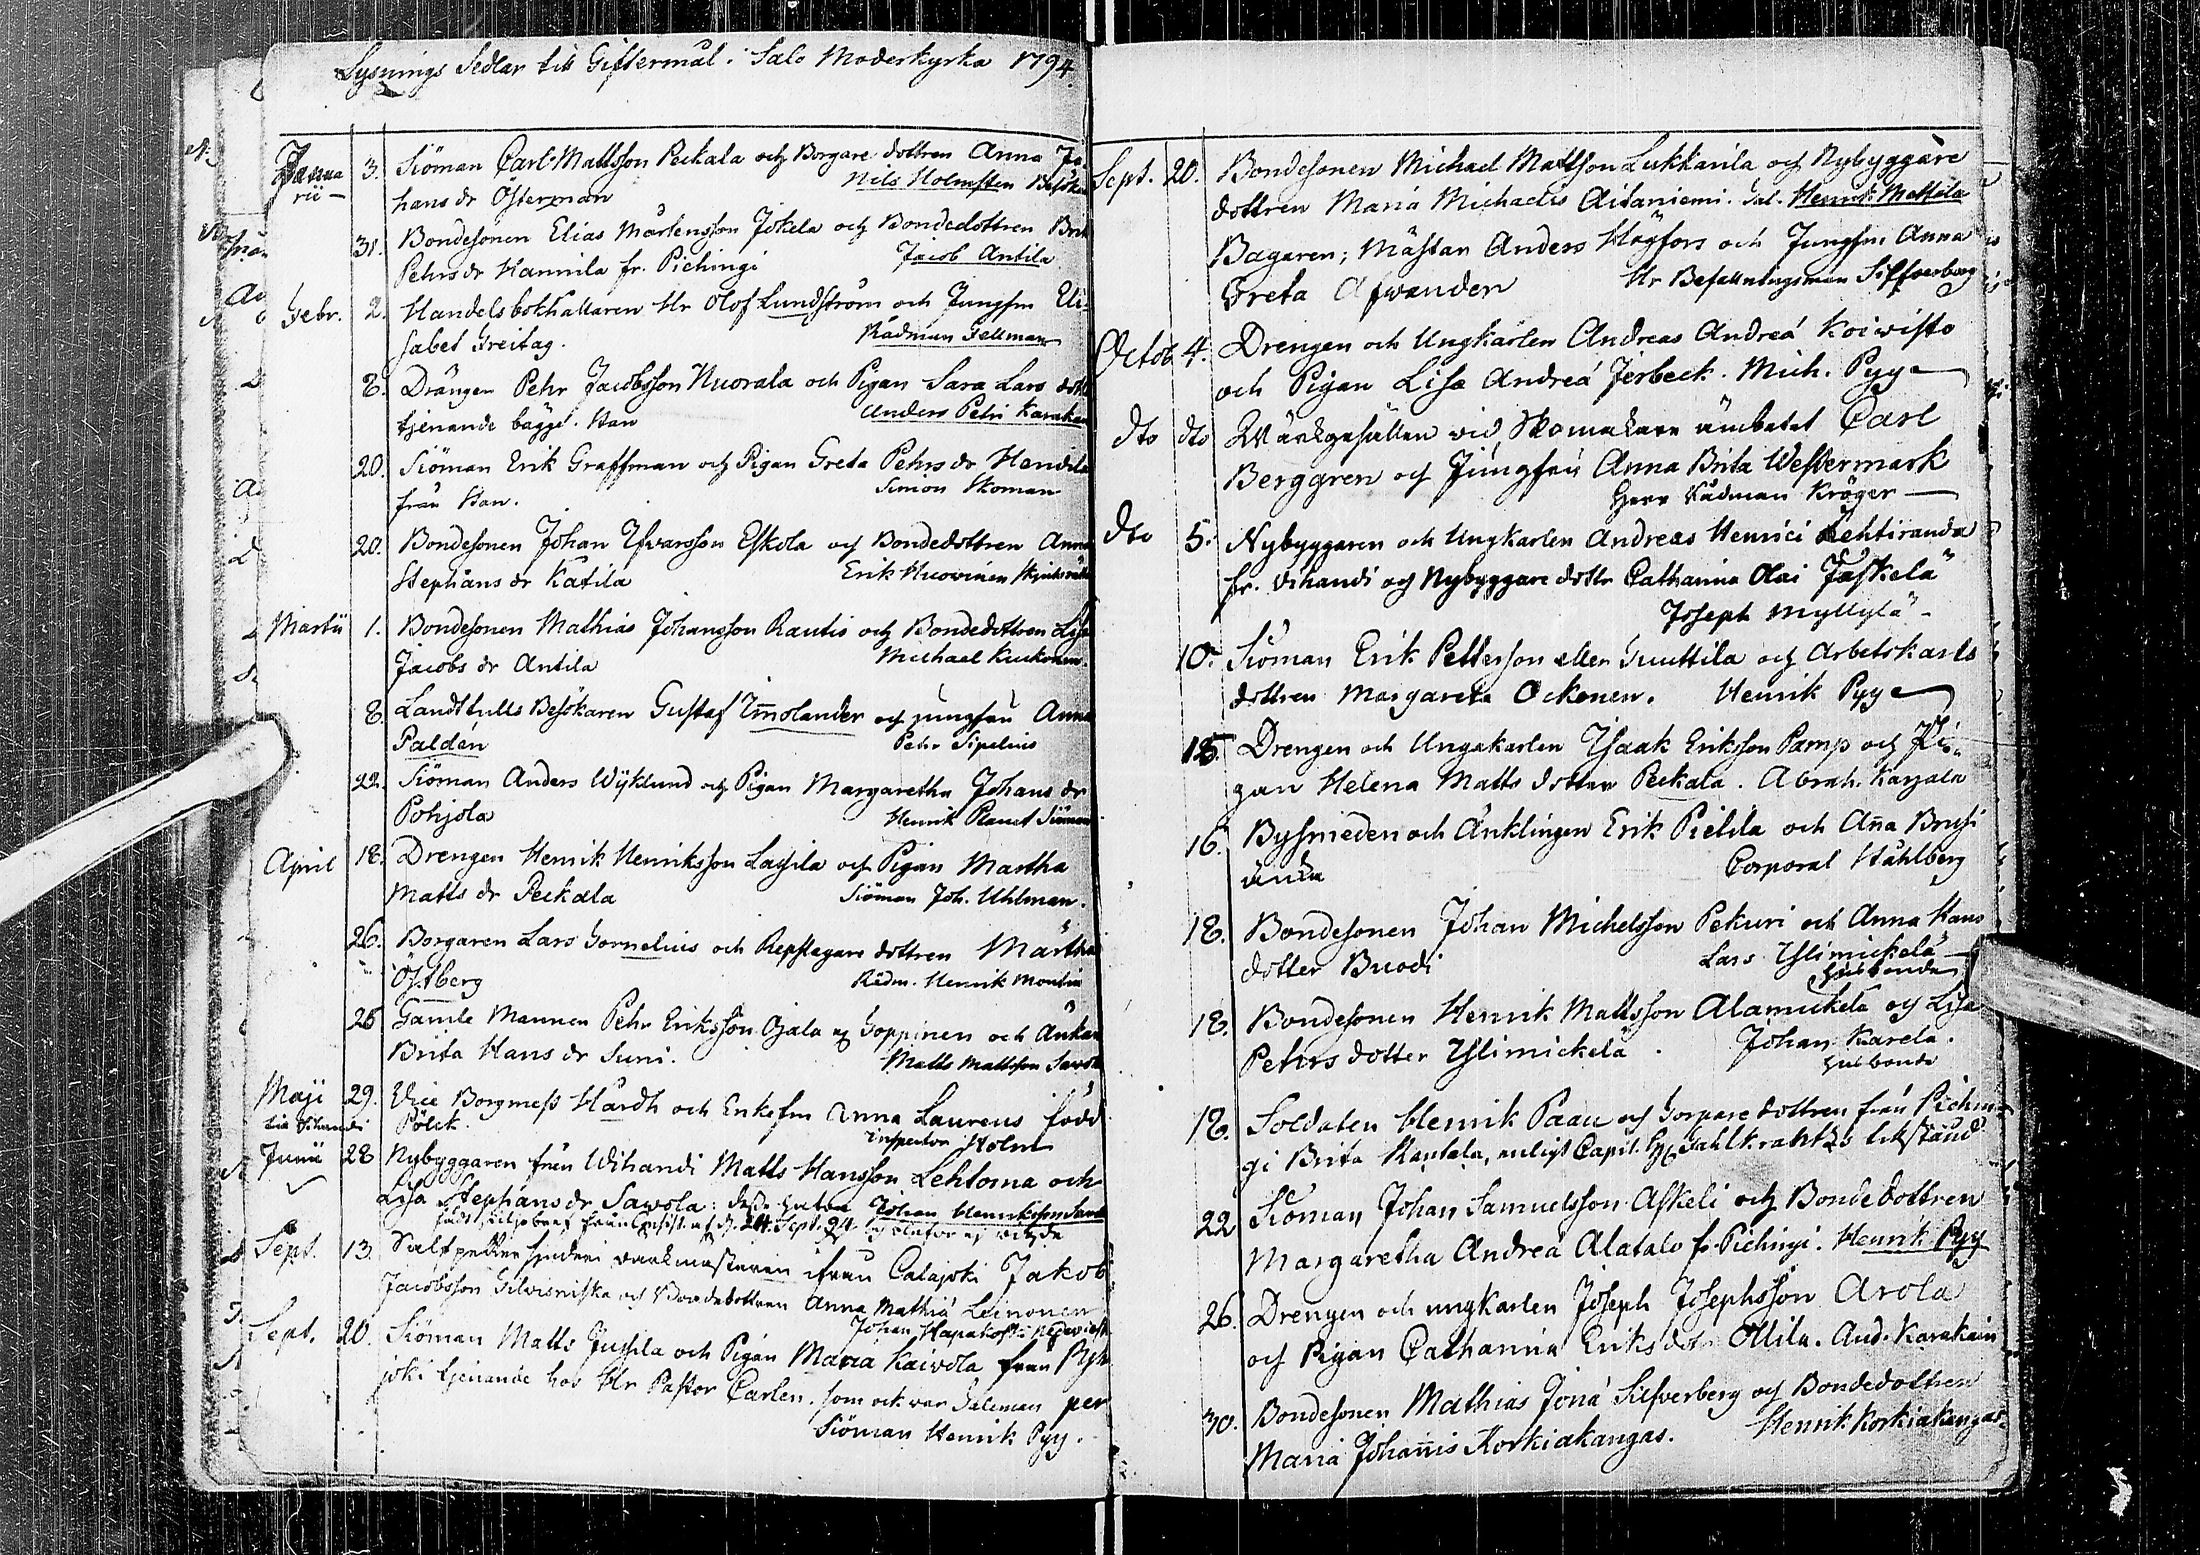 Lysnings Sedlar till Giftermål. Salo Moderkyrka 1794.
Januarii 3. Siöman Carl Mattsson Peckala och Borgare dottren Anna Jo
hans dr Österman Nils Holmsten
31. Bondesonen Elias Mårtensson Jokela och Bondedottren Brit
Pehrs dr Hannila fr. Pichingi Jacob Antila
Febr. 2. Handelsbokhållaren Hr Olof Lundström och Jungfru Eli-
sabet Freitag. Rådman Gellman
8. Drängen Pehr Jacobsson Nuorala och Pigan Sara Lars dott
tjenande bägge. Anders Petri Karakai
20. Siöman Erik Graffman och Pigan Greta Pehrs dr Hendila
från Simon Skoman
20. Bondesonen Johan Yfvarsson Eskola och Bondedottren Anna
Stephans dr Katila Erik Huovinen
Martii 1. Bondesonen Mathias Johansson Rautio och Bondedottren Lisa
Jacobs dr Antila Michael Kuckonen.
8. Landttulls Besökaren Gustaf Immolander och jungfru Anna
Paldén Pehr Sipelius
22. Siöman Anders Wijklund och Pigan Margaretha Johans dr
Pohjola Henrik Planet Siöman
April 18. Drengen Henrik Henriksson Lassila och Pigan Martha
Matts dr Peckala Siöman Joh. Uhlman.
26. Borgaren Lars Cornelius och Repslagare dottren Märtha
Östberg Rådm. Henrik Montin
26 Gamle Mannen Pehr Eriksson Ojala Goppinen och Änkan
Brita Hans dr Suni. Matts Mattsson Savola
Maji 29. Vice Borgmest Hårdh och Enkefru Anna Laurens född
Pölck. inspector Holm
Junii 28 Nybyggaren från Wihandi Matts Hansson Lehtoma och
Lisa Stephans dr Savola: Johan Henriksson
Sept. 13. Salfpetter sjuderi värkmästaren ifrån Calajoki Jakob
Jacobsson och Bondedottren Anna Mathiæ Leinonen
Johan Hapakoski
Sept. 20. Siöman Matts Jussila och Pigan Maria Kaivola från Pyhä
joki tjenande hos Hr Pastor Carlen. som ock var Taleman per
Siöman Henrik Pyy.
Sept. 20. Bondesonen Michael Mattsson Lukkarila och Nybyggare
dottren Maria Michaelis Aitaniemi. Tal. Henrik Mattila
Bagaren; Mästar Anders Högfors och Jungfru Anna
Greta Afwander Hr Befallningsman Silfverberg
Octob 4. Drengen och Ungkarlen Andreas Andreá Koivisto
och Pigan Lisa Andreá Jerbeck. Mich. Pyy
dto dto Wärkgesällen vid Skomakare ämbetet Carl
Berggren och Jungfru Anna Brita Westermark
Herr Rådman Kröger
dto 5. Nybyggaren och Ungkarlen Andreas Henrici Lehtiranda
fr. Vihandi och Nybyggare dottr Catharina Olai Jäskelä
Joseph Myllylä
10. Siöman Erik Pettersson eller Gunttila och Arbetskarls
dottren Margareta Ockonen. Henrik Pyy
15. Drengen och Ungakarlen Isaak Eriksson Pamp och Pi-
gan Helena Matts dotter Peckala. Abrah. Karjala
16. Bysmeden och Änklingen Erik Pielila och Anna Brusi
änka Corporal Ståhlberg
18. Bondesonen Johan Michelsson Pekuri och Anna Hans
dotter Buodi Lars Ylimickelä
Husbonde
18. Bondesonen Henrik Mattsson Alamickelä och Lisa
Pehrs dotter Ylimickelä. Johan Karela.
Husbonde
18. Soldaten Henrik Paau och Torpare dottren från Pichin-
gi Brita Rantala, enligt Capit. Hr Gahlkrantz's tilstånd
22 Siöman Johan Samuelsson Askeli och Bondedottren
Margaretha Andreá Alatalo fr. Pichingi. Henrik Pyy
26. Drengen och ungkarlen Joseph Josephsson Arola
och Pigan Catharina Eriks dotr Ollila. And. Karakain
30. Bondesonen Mathias Jonæ Silfverberg och Bondedottren
Maria Johannis Korkiakangas. Henrik Korkiakangas.